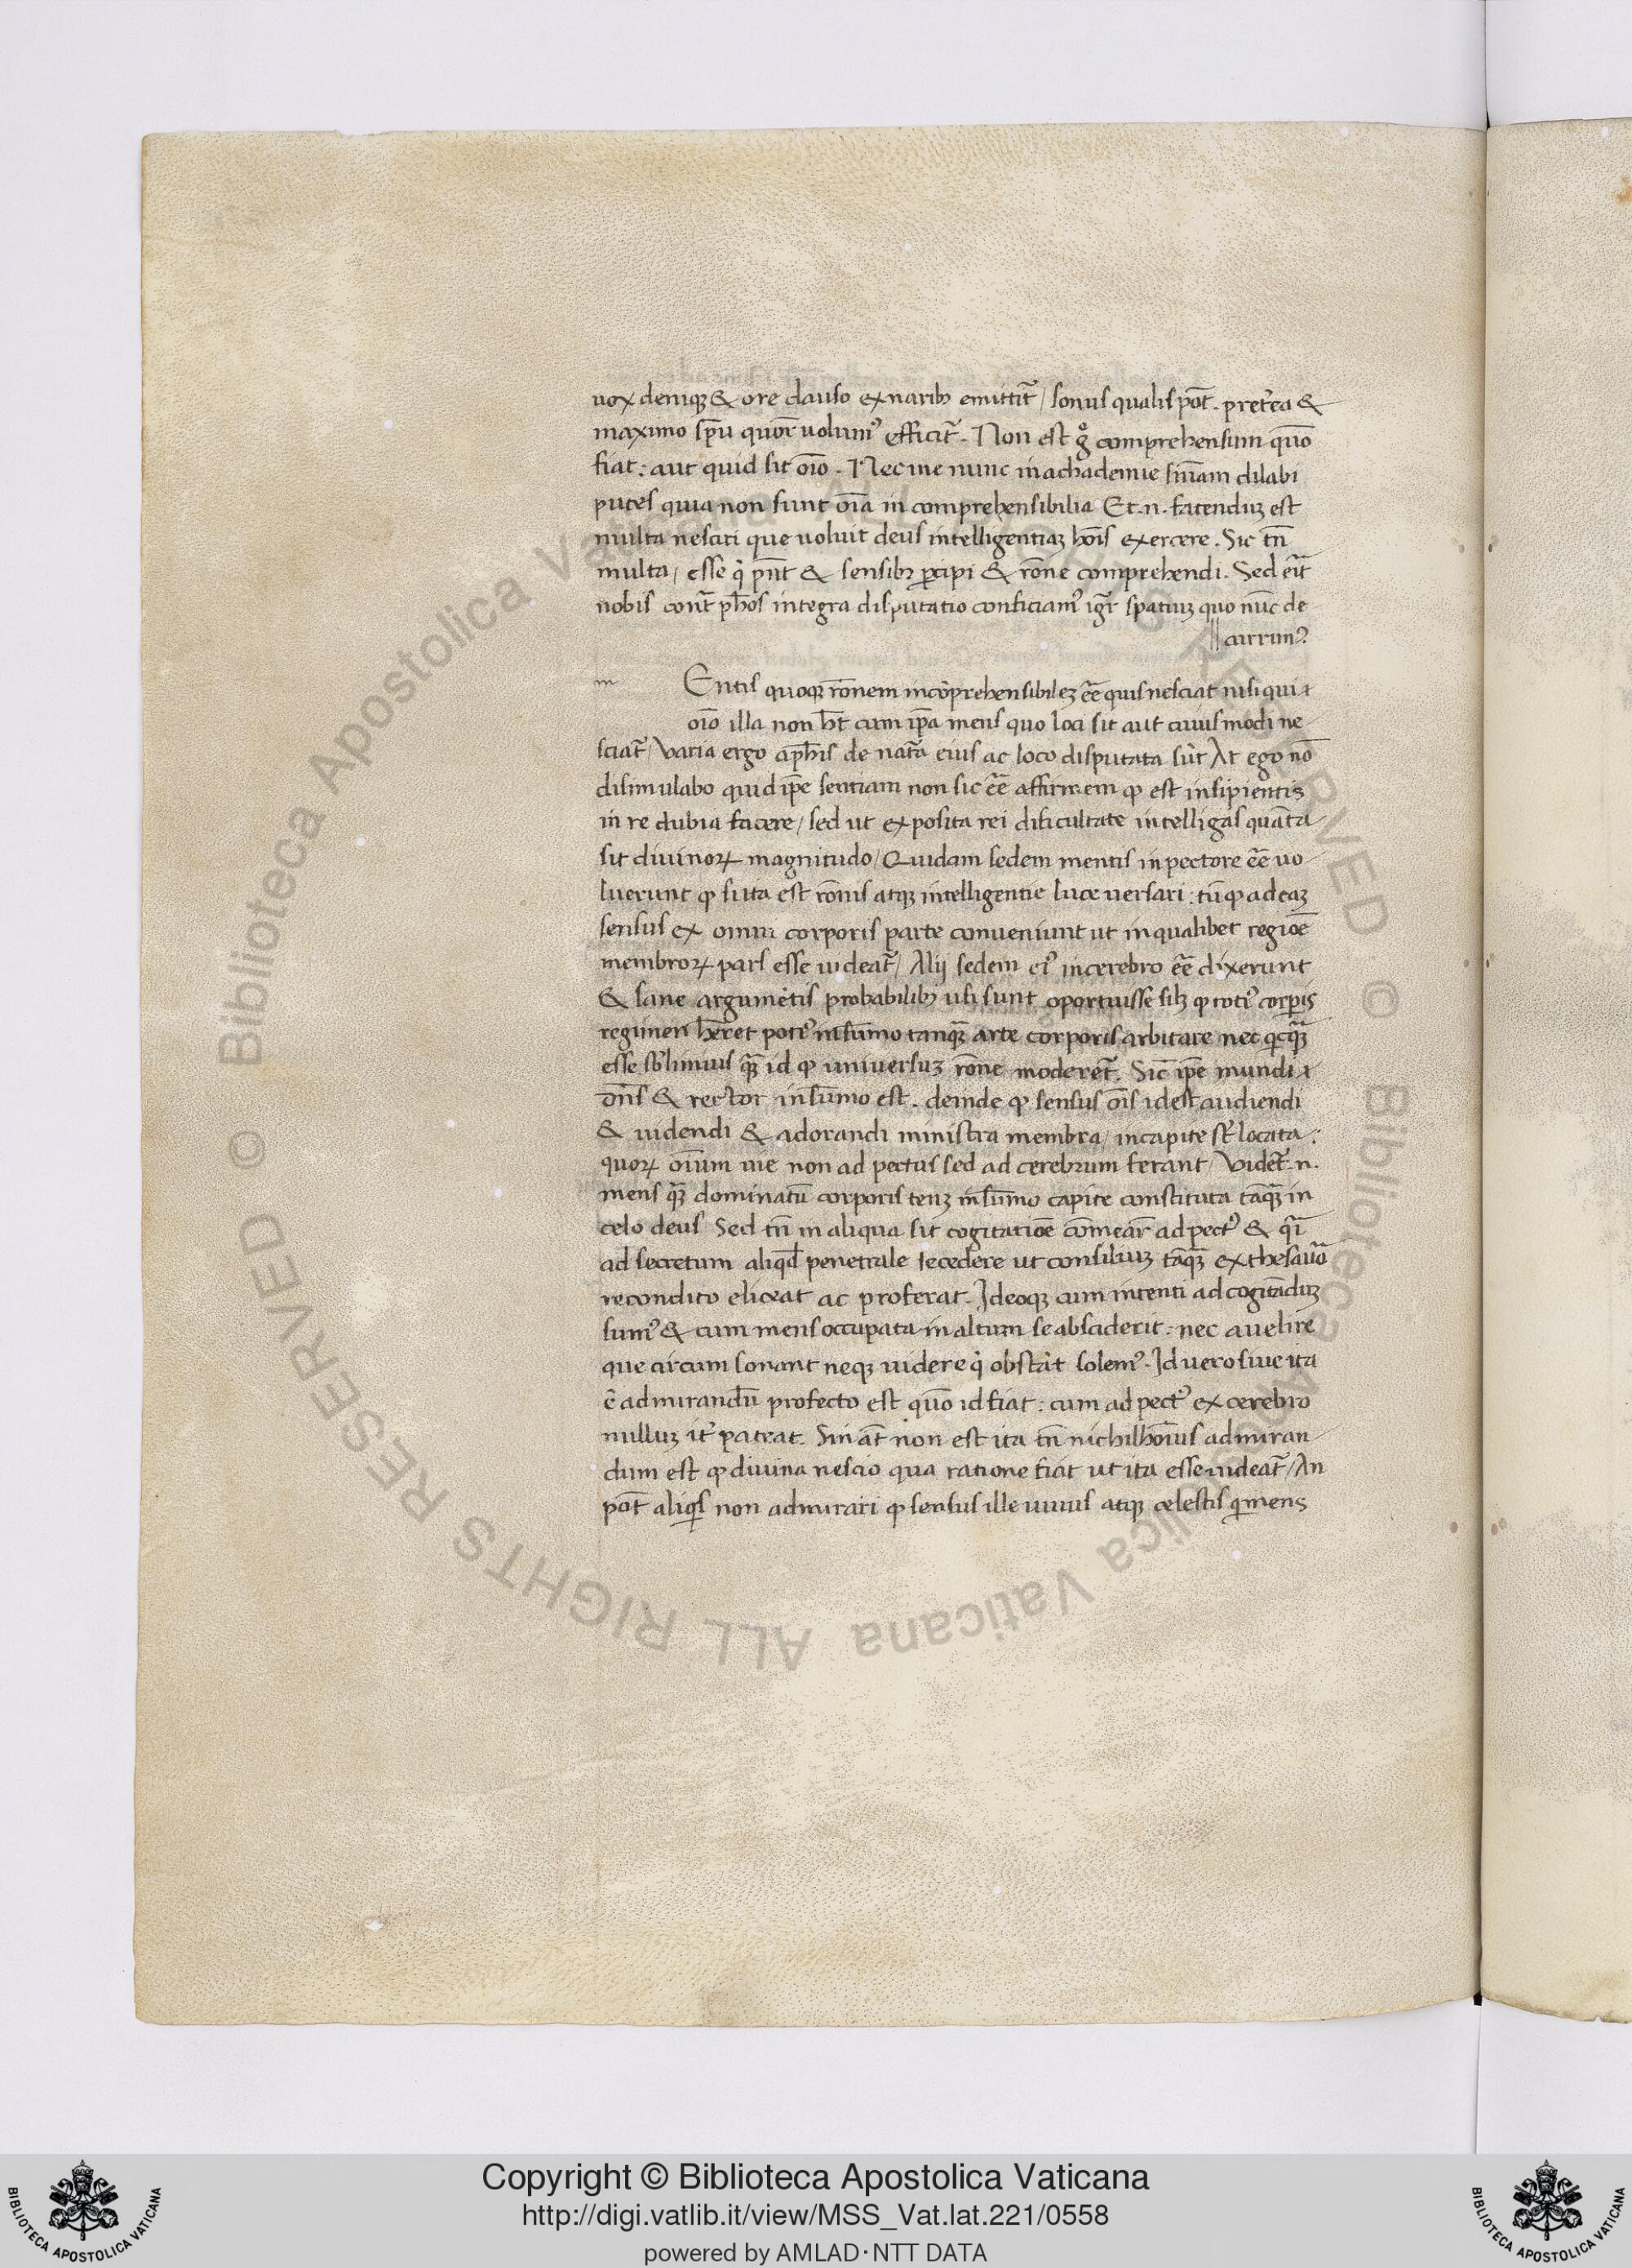 uox deniq; & ore clauso ex narib; emittit̃ / sonus qualis põt . pret̃ea &
maximo sp̃u quõr uolum⁹ efficit̃ . Non est g̊ comprehensum quõ
fiat : aut quid sit oĩo . Nec me nunc in achademie sñiam dilabi
putes quia non sunt oĩa in comprehensibilia Et .n. fatenduȝ est
multa nesciri que uoluit deus intelligentiaȝ hoĩs excere . Sic tñ
multa / esse q̇ pñt & sensib; ꝑcipi & rõne comprehendi . Sed erit̃
nobis cont̃ ph̃os integra disputatio conficiam⁹ igr̃ spatiuȝ quo nũc de
|| currim⁹
m Entis quoq; rõnem incõprehensibileȝ eẽ quis nesciat nisi qui
oĩo illa non h̃t cum ip̃a mens quo loci sit aut cuiusmodi ne
sciat̃ / Varia ergo a ph̃is de nat̃a eius ac loco disputata sũt At ego nõ
disimulabo quid ip̃e sentiam non sic eẽ affirmem ꝙ est insipientis
in re dubia facere / sed ut exposita rei dificultate intelligas quãta
sit diuinoꝝ magnitudo / Quidam sedem mentis in pectore eẽ uo
luerunt ꝙ sí ita est rõnis atq; intelligentie luce uersari : tũ ꝙ ad eaȝ
sensus ex omni corporis parte conueniunt ut in qualibet regiõe
membroꝝ pars esse uideat̃ / Alij sedem ei⁹ in cerebro eẽ dixerunt
& sane argumẽtis probabilib; usi sunt oportuisse silȝ ꝙ toti⁹ corꝑis
regimen h̃eret poti⁹ in sũmo tanq̃ȝ arte corporis arbitare nec q̇cq̃ȝ
esse sb̃limius q̃ȝ id ꝙ uniuersuȝ rõne moderet̃ . Sic̃ ip̃e mundi
dñs & rector in sũmo est . deinde ꝙ sensus oĩs id est audiendi
& uidendi & adorandi ministra membra / in capite st̃ locata :
quoꝝ oĩum uie non ad pectus sed ad cerebrum ferant / Videt̃ .n.
mens q̃ȝ dominatũ corporis teneȝ in sũmo capite constituta tãq̃ȝ in
celo deus Sed tñ in aliqua sit cogitatiõe cõmear̃ ad pect⁹ & q̃i
ad secretum aliqd̃ penetrale secedere ut consiliuȝ tãq̃ȝ ex thesauro
recondito eliceat ac proferat . Ideoq; cum intenti ad cogitãduȝ
sum⁹ & cum mens occupata in altum se absciderit : nec auelire
que circum sonant neq; uidere q̇ obstãt solem⁹ . Id uero siue ita
ẽ admirandũ profecto est quõ id fiat : cum ad pect⁹ ex cerebro
nulluȝ it̾ pateat . Sin at̃ non est ita tñ nichilhoĩus admiran
dum est ꝙ diuina nescio qua ratione fiat ut ita esse uideat̃ / An
põt aliq̇s non admirari ꝙ sensus ille uiuus atq; celestis q̇ mens
Copyright © Biblioteca Apostolica Vaticana
http://digi.vatlib.it/view/MSS_Vat.lat.221/0558
powered by AMLAD·NTT DATA
BIBLIOTECA APOSTOLICA VATICANA
BIBLIOTECA APOSTOLICA VATICANA
© Biblioteca Apostolica Vaticana ALL RIGHTS RESERVED © Biblioteca Apostolica Vaticana ALL RIGHTS RESERVED